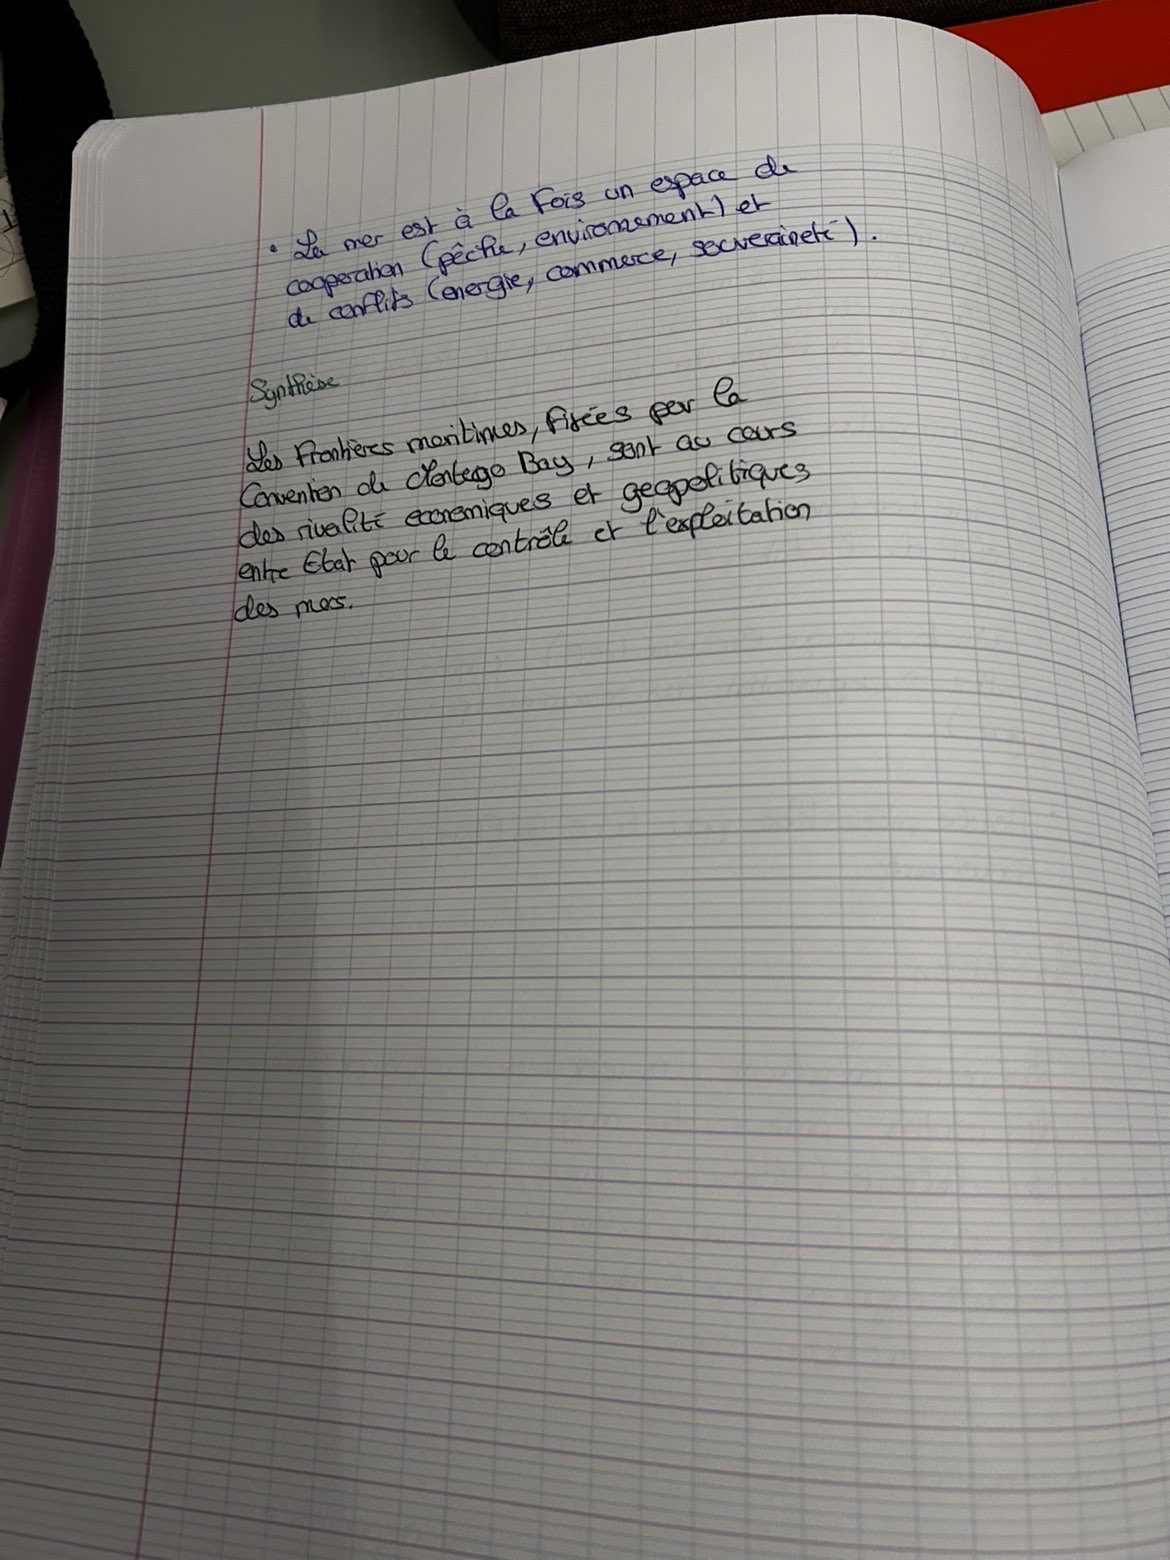 • La mer est à la fois un espace de
coopération (pêche, environnement) et
de conflits (énergie, commerce, souveraineté).
Synthèse
Les frontières maritimes, fixées par la
Convention de Montego Bay, sont au cours
des rivalité économiques et geopolitiques
entre Etat pour le contrôle et l'exploitation
des mers.